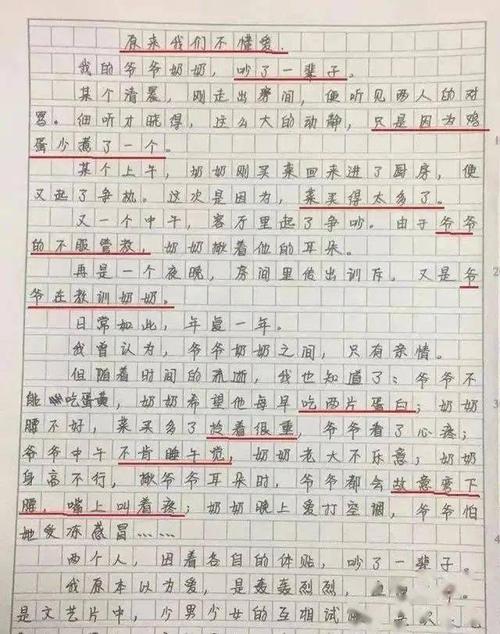 原来我们不懂爱.
我的爷爷奶奶，吵了一辈子。
某个清晨，刚走出房间，便听见两人的对
骂。细听才晓得，这么大的动静，只是因为鸡
蛋少煮了一个。
某个上午，奶奶刚买菜回来进了厨房，便
又起了争执。这次是因为，菜买得太多了。
又一个中午，客厅里起了争吵。由于爷爷
的不服管教，奶奶揪着他的耳朵。
再是一个夜晚，房间里传出训斥。又是爷
爷在教训奶奶。
日常如此，年复一年。
我曾认为，爷爷奶奶之间，只有亲情。
但随着时间的流逝，我也知道了：爷爷不
能吃蛋黄，奶奶希望他每早吃两片蛋白；奶奶
腰不好，菜买多了拎着很重，爷爷看了心疼；
爷爷中午不肯睡午觉，奶奶老大不乐意；奶奶
身高不行，揪爷爷耳朵时，爷爷都会故意弯下
腰，嘴上叫着疼；奶奶晚上爱打空调，爷爷怕
她受冻感冒……
两个人，因着各自的体贴，吵了一辈子。
我原本以为爱，是轰轰烈烈，
是文艺片中，少男少女的互相试
1
2
3
4